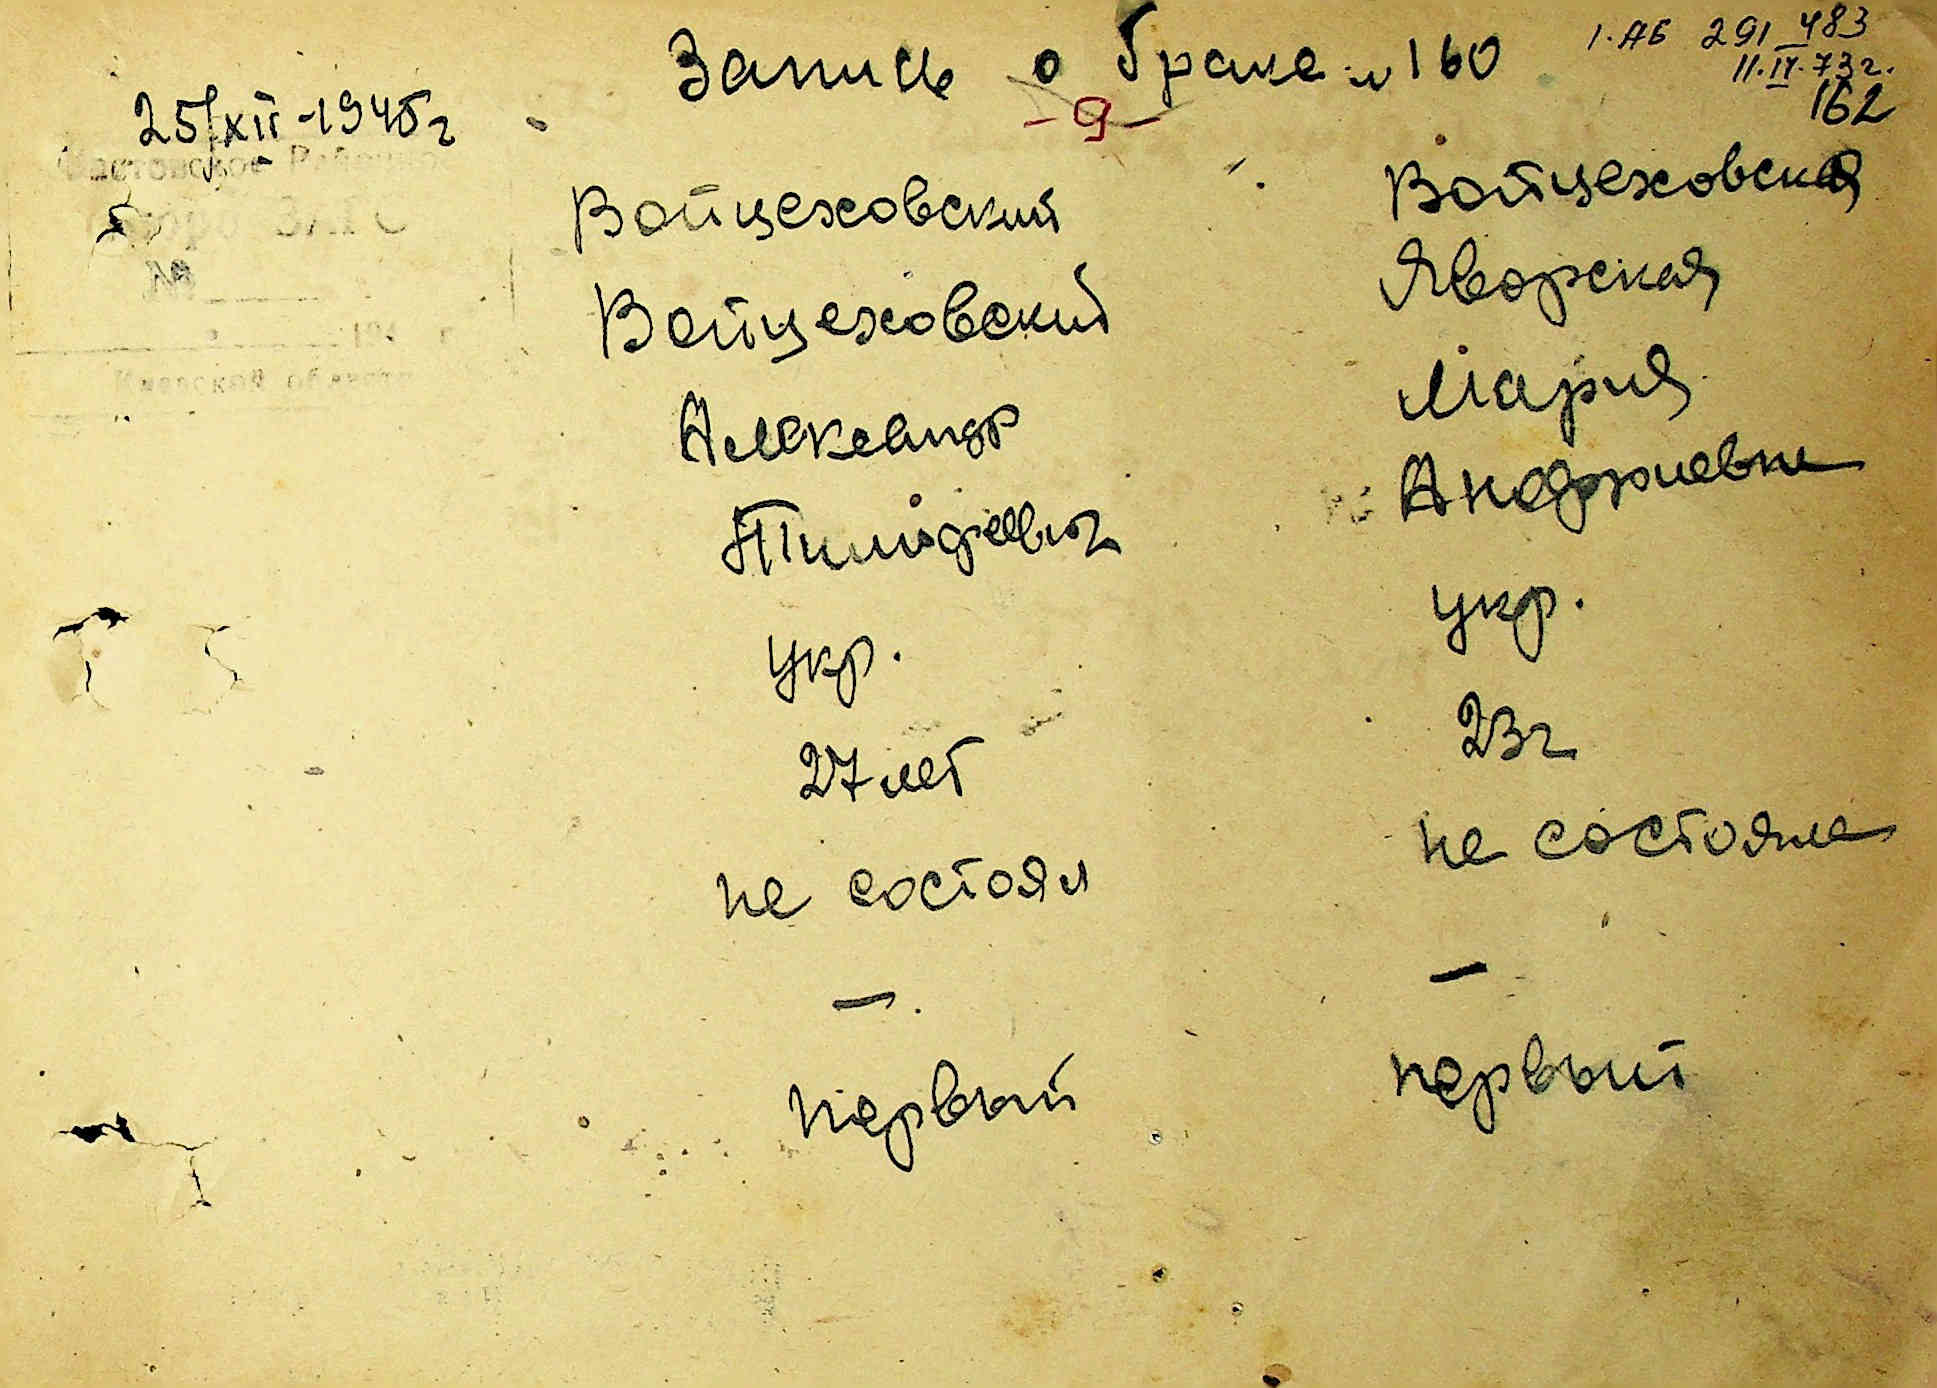 Запись о браке № 160
1.АБ 291 483
11.IV.73 г.
162
25/XII-1945 г
-9-
Фастовское Районное
Бюро ЗАГС
№
194 г.
Киевской области
Войцеховский Войцеховская
Войцеховский Яворская
Александр Мария
Тимофеевич Андреевна
укр. укр.
27 лет 23 г
не состоял не состояла
— —
первый первый